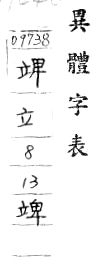 異體字表
09738
䇑
立
8
13
䇑